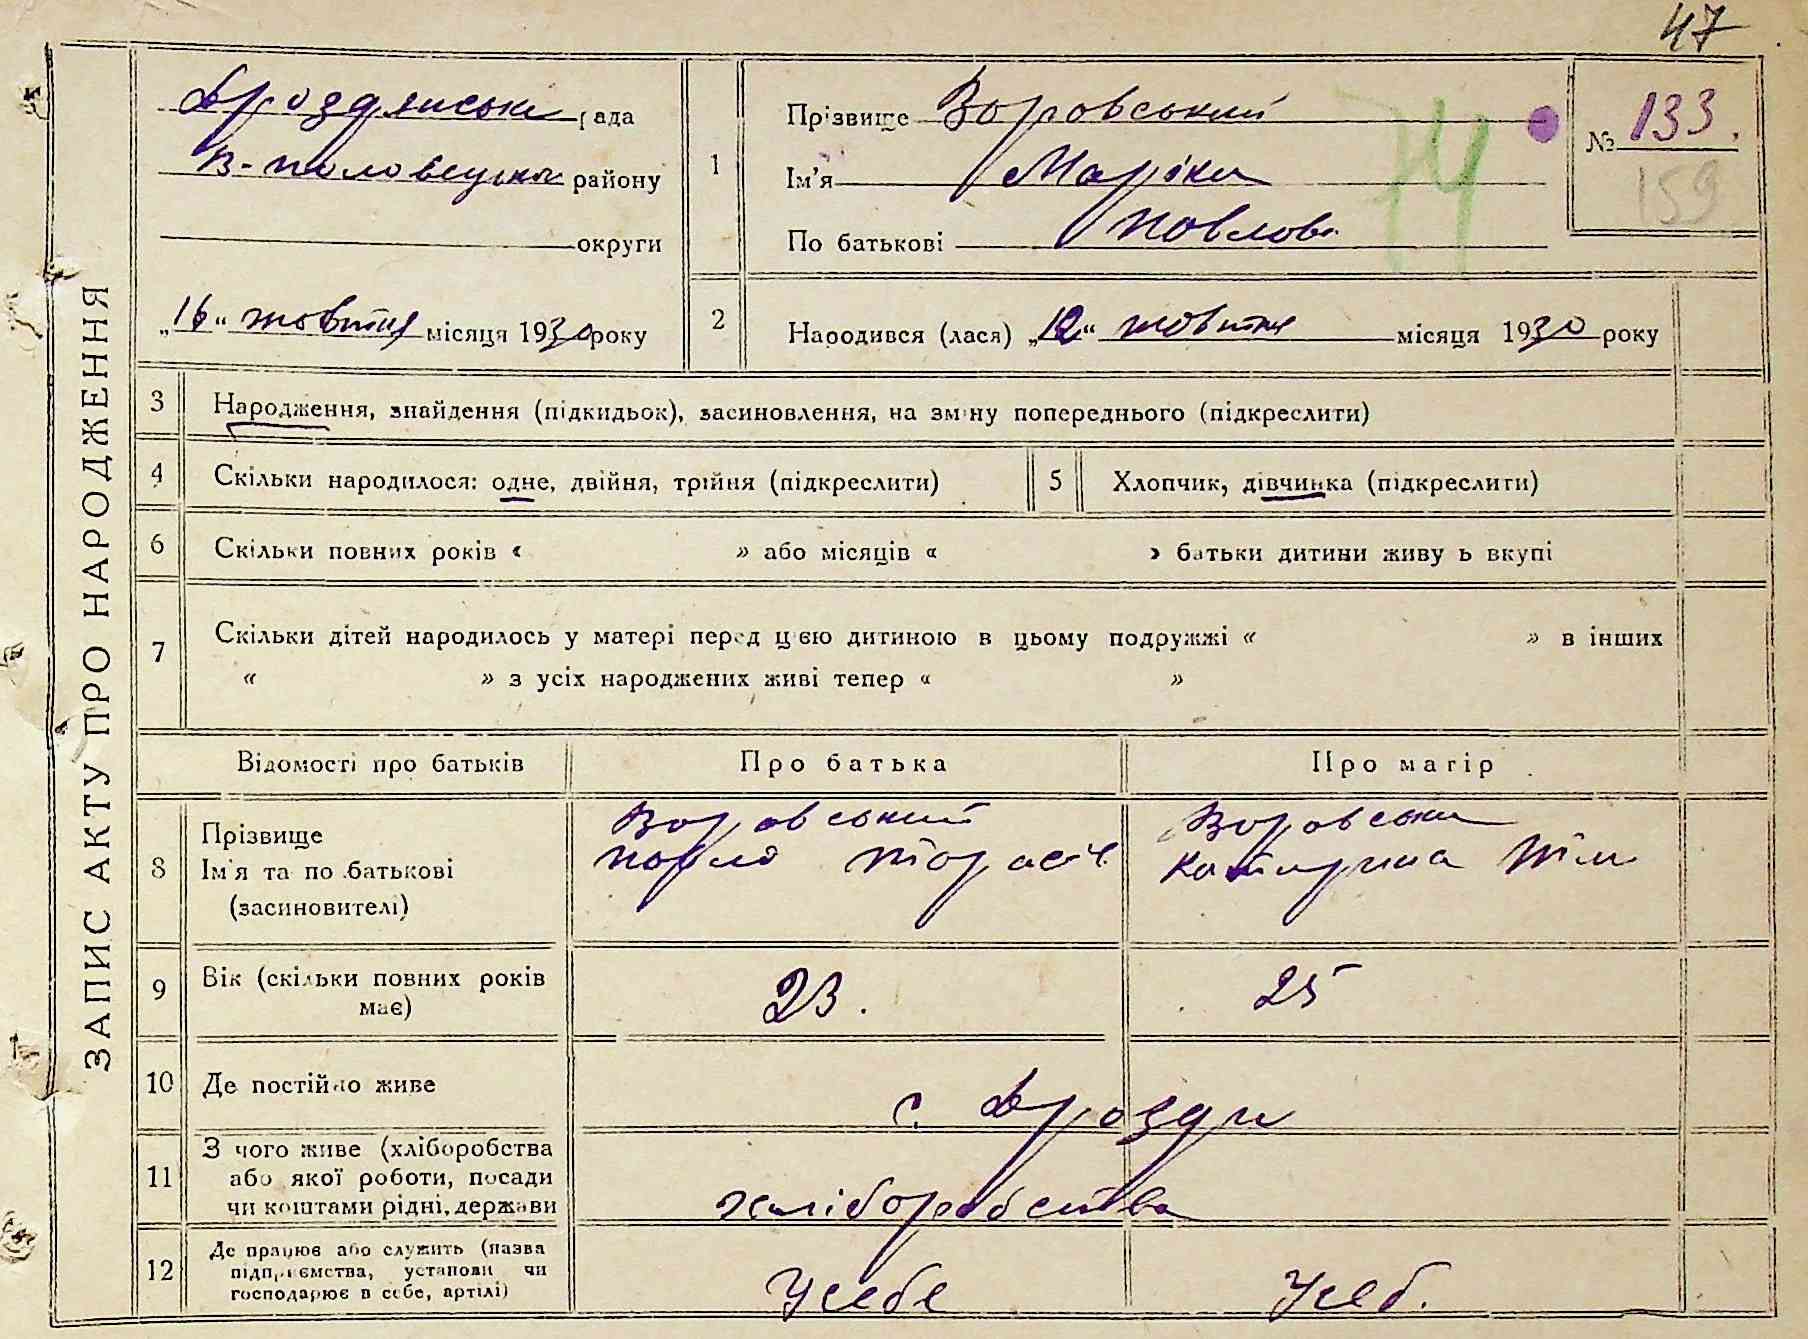 47
ЗАПИС АКТУ ПРО НАРОДЖЕННЯ
Дроздянська рада
В-половецького району
округи
„16“ жовтня місяця 1930 року
1
Прізвище Воровський
Ім'я Маріка
По батькові Повлова
№ 133.
159
74
2
Народився (лася) „12“ жовтня місяця 1930 року
3 Народження, знайдення (підкидьок), засиновлення, на зміну попереднього (підкреслити)
4 Скільки народилося: одне, двійня, трійня (підкреслити)
5 Хлопчик, дівчинка (підкреслити)
6 Скільки повних років « » або місяців « » батьки дитини живуть вкупі
7 Скільки дітей народилось у матері перед цією дитиною в цьому подружжі « » в інших
« » з усіх народжених живі тепер « »
Відомості про батьків Про батька Про матір
8 Прізвище
Ім'я та по батькові
(засиновителі)
Воровський
Повло Торасів
Воровська
Катирина Тим
9 Вік (скільки повних років
має)
23. 25
10 Де постійно живе с. Дрозди
11 З чого живе (хліборобства
або якої роботи, посади
чи коштами рідні, держави
хліборобства
12 Де працює або служить (назва
підприємства, установи чи
господарює в себе, артілі)
Усебе Усеб.